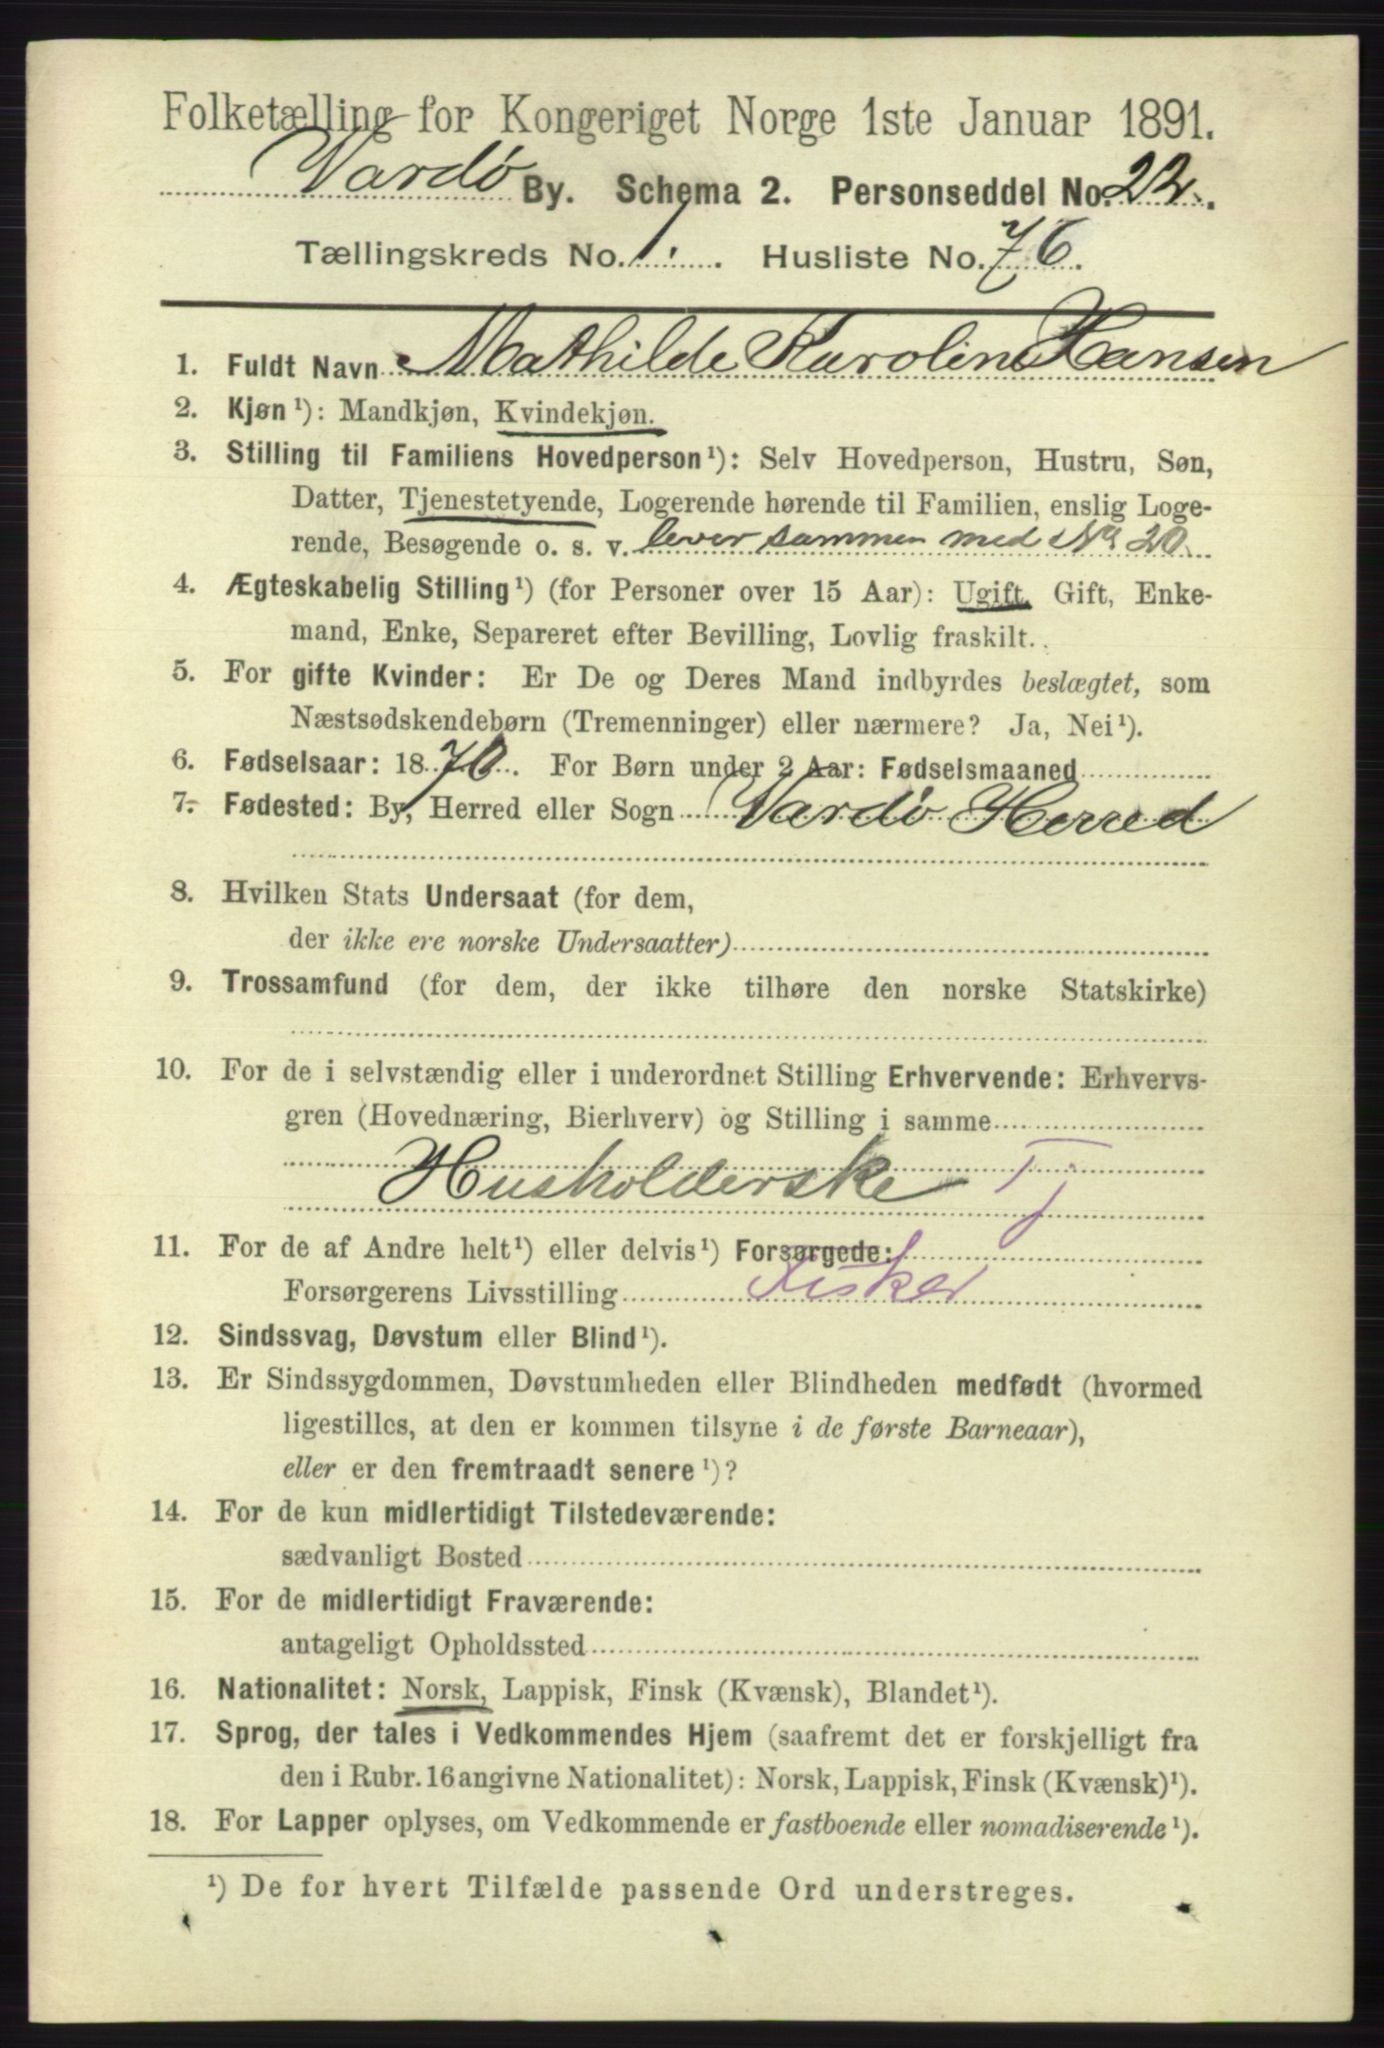 Folketælling for Kongeriget Norge 1ste Januar 1891.
Vardø By. Schema 2. Personseddel No. 22.
Tællingskreds No. 1. Husliste No. 76.
1. Fuldt Navn Mathilde Karoline Hansen
2. Kjøn¹): Mandkjøn, Kvindekjøn.
3. Stilling til Familiens Hovedperson¹): Selv Hovedperson, Hustru, Søn,
Datter, Tjenestetyende, Logerende hørende til Familien, enslig Loge-
rende, Besøgende o. s. v. lever sammen med No 20
4. Ægteskabelig Stilling¹) (for Personer over 15 Aar): Ugift, Gift, Enke-
mand, Enke, Separeret efter Bevilling, Lovlig fraskilt.
5. For gifte Kvinder: Er De og Deres Mand indbyrdes beslægtet, som
Næstsødskendebørn (Tremenninger) eller nærmere? Ja, Nei¹).
6. Fødselsaar: 1870. For Børn under 2 Aar: Fødselsmaaned
7. Fødested: By, Herred eller Sogn Vardø Herred
8. Hvilken Stats Undersaat (for dem,
der ikke ere norske Undersaatter)
9. Trossamfund (for dem, der ikke tilhøre den norske Statskirke)
10. For de i selvstændig eller i underordnet Stilling Erhvervende: Erhvervs-
gren (Hovednæring, Bierhverv) og Stilling i samme
Husholderske Tj
11. For de af Andre helt¹) eller delvis¹) Forsørgede:
Forsørgerens Livsstilling Fisker
12. Sindssvag, Døvstum eller Blind¹).
13. Er Sindssygdommen, Døvstumheden eller Blindheden medfødt (hvormed
ligestilles, at den er kommen tilsyne i de første Barneaar),
eller er den fremtraadt senere¹)?
14. For de kun midlertidigt Tilstedeværende:
sædvanligt Bosted
15. For de midlertidigt Fraværende:
antageligt Opholdssted
16. Nationalitet: Norsk, Lappisk, Finsk (Kvænsk), Blandet¹).
17. Sprog, der tales i Vedkommendes Hjem (saafremt det er forskjelligt fra
den i Rubr. 16 angivne Nationalitet): Norsk, Lappisk, Finsk (Kvænsk)¹).
18. For Lapper oplyses, om Vedkommende er fastboende eller nomadiserende¹).
¹) De for hvert Tilfælde passende Ord understreges.